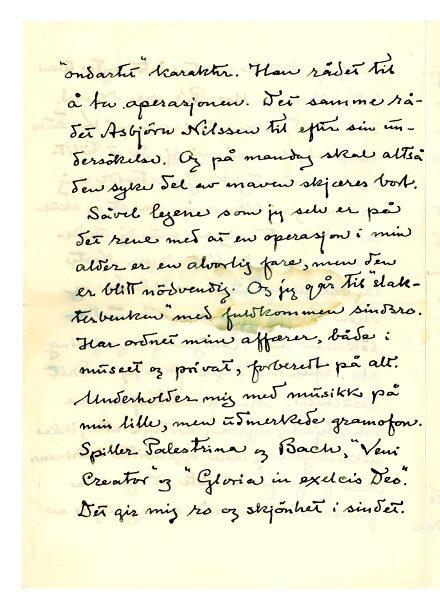 "ondartet" karakter. Han rådet til
å ta operasjonen. Det samme rå-
det Asbjörn Nilssen til efter sin un-
dersökelse. Og på mandag skal altså
den syke del av maven skjæres bort.
Såvel legene som jeg selv er på
det rene med at en operasjon i min
alder er en alvorlig fare, men den
er blitt nödvendig. Og jeg går til "slak-
terbenken" med fuldkommen sindsro.
Har ordnet mine affærer, både i
museet og privat, forberedt på alt.
Underholder mig med musikk på
min lille, men udmerkede gramofon.
Spiller Palestrina og Bach, "Veni
Creator" og "Gloria in exelcis Deo".
Det gir mig ro og skjönhet i sindet.